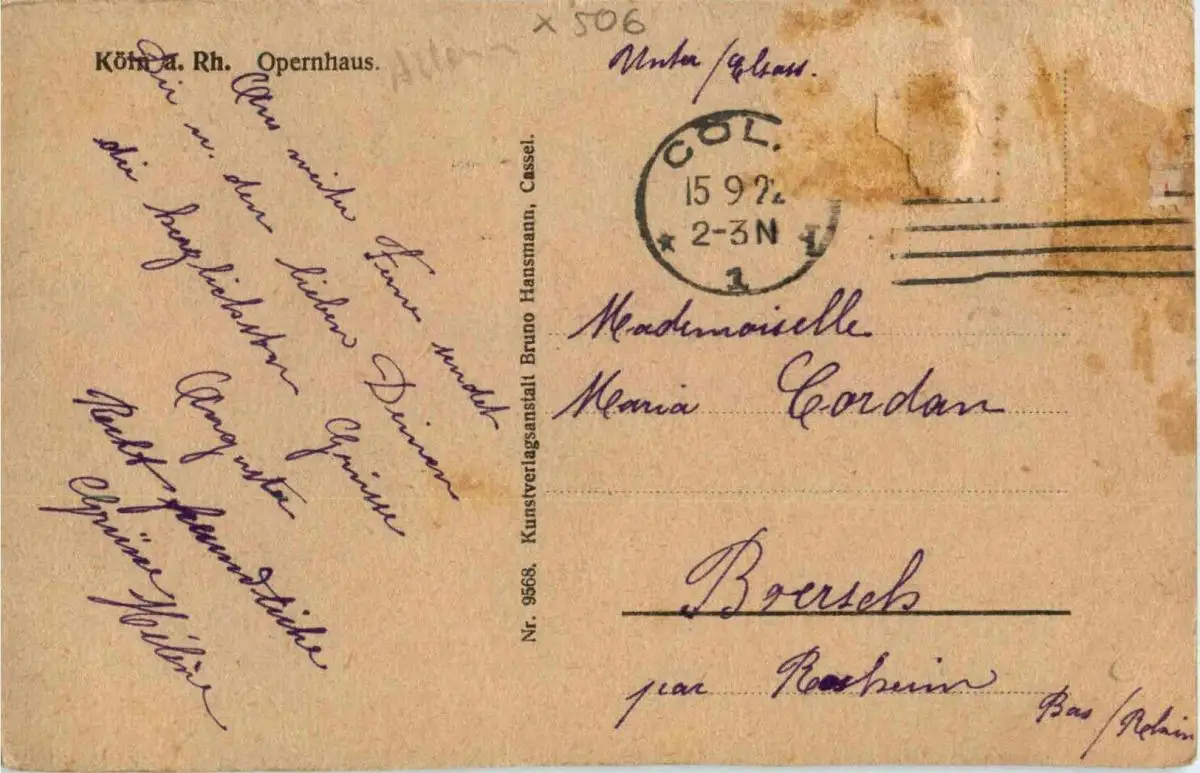 x 506
Köln a. Rh. Opernhaus.
Aus weiter Ferne sendet
Dir u. den lieben Deinen
die herzlichsten Grüsse
Augusta
Recht freundliche
Grüsse Hélène
Nr. 9568. Kunstverlagsanstalt Bruno Hansmann, Cassel.
Unter/Elsass.
CÖL
15 9 22
2-3 N
1
Mademoiselle
Maria Cordan
Boersch
par Rosheim
Bas/Rhin